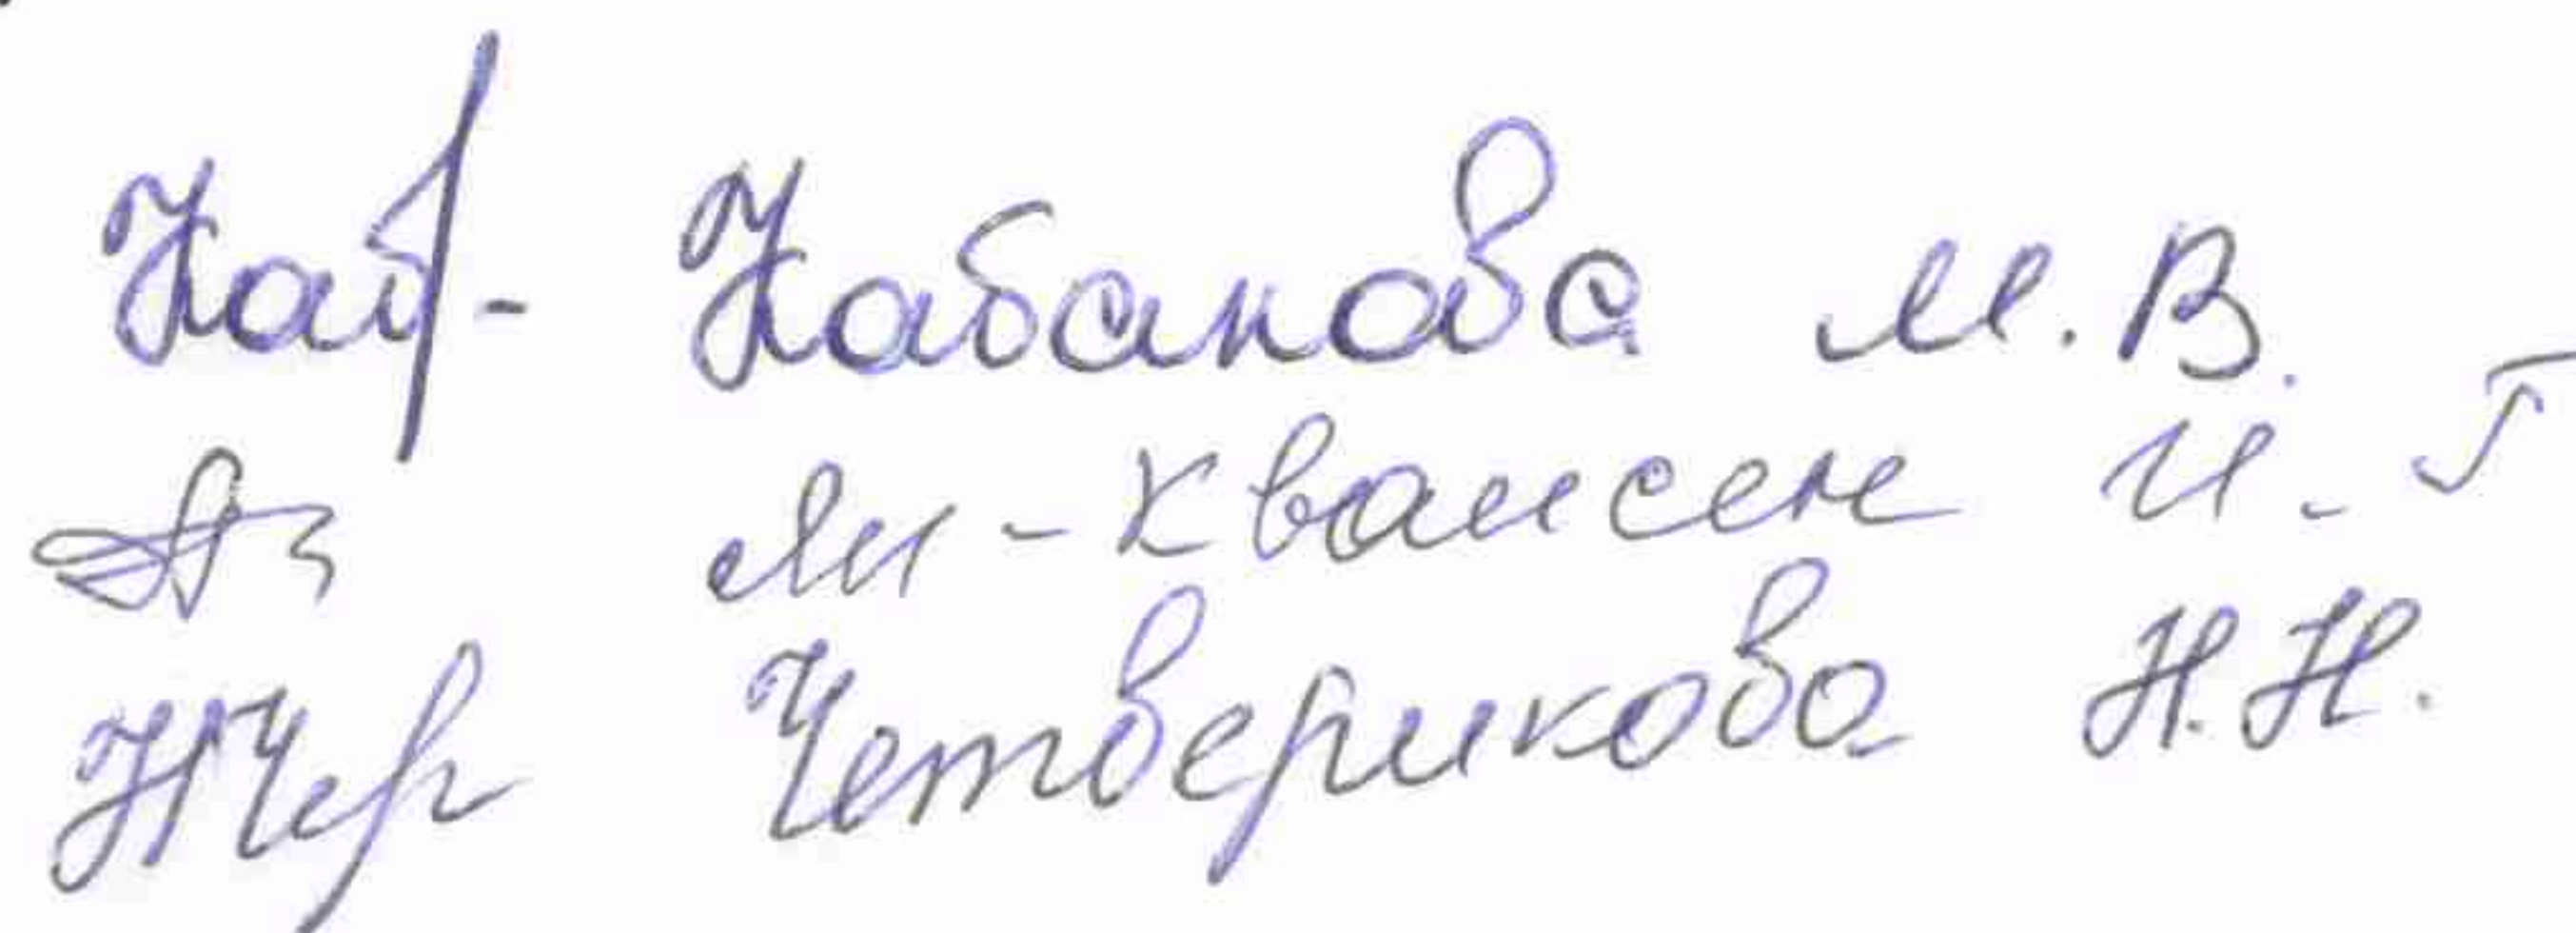 Кабанова М.В.
Ли-Квансен И. Г
Четверикова Н.Н.